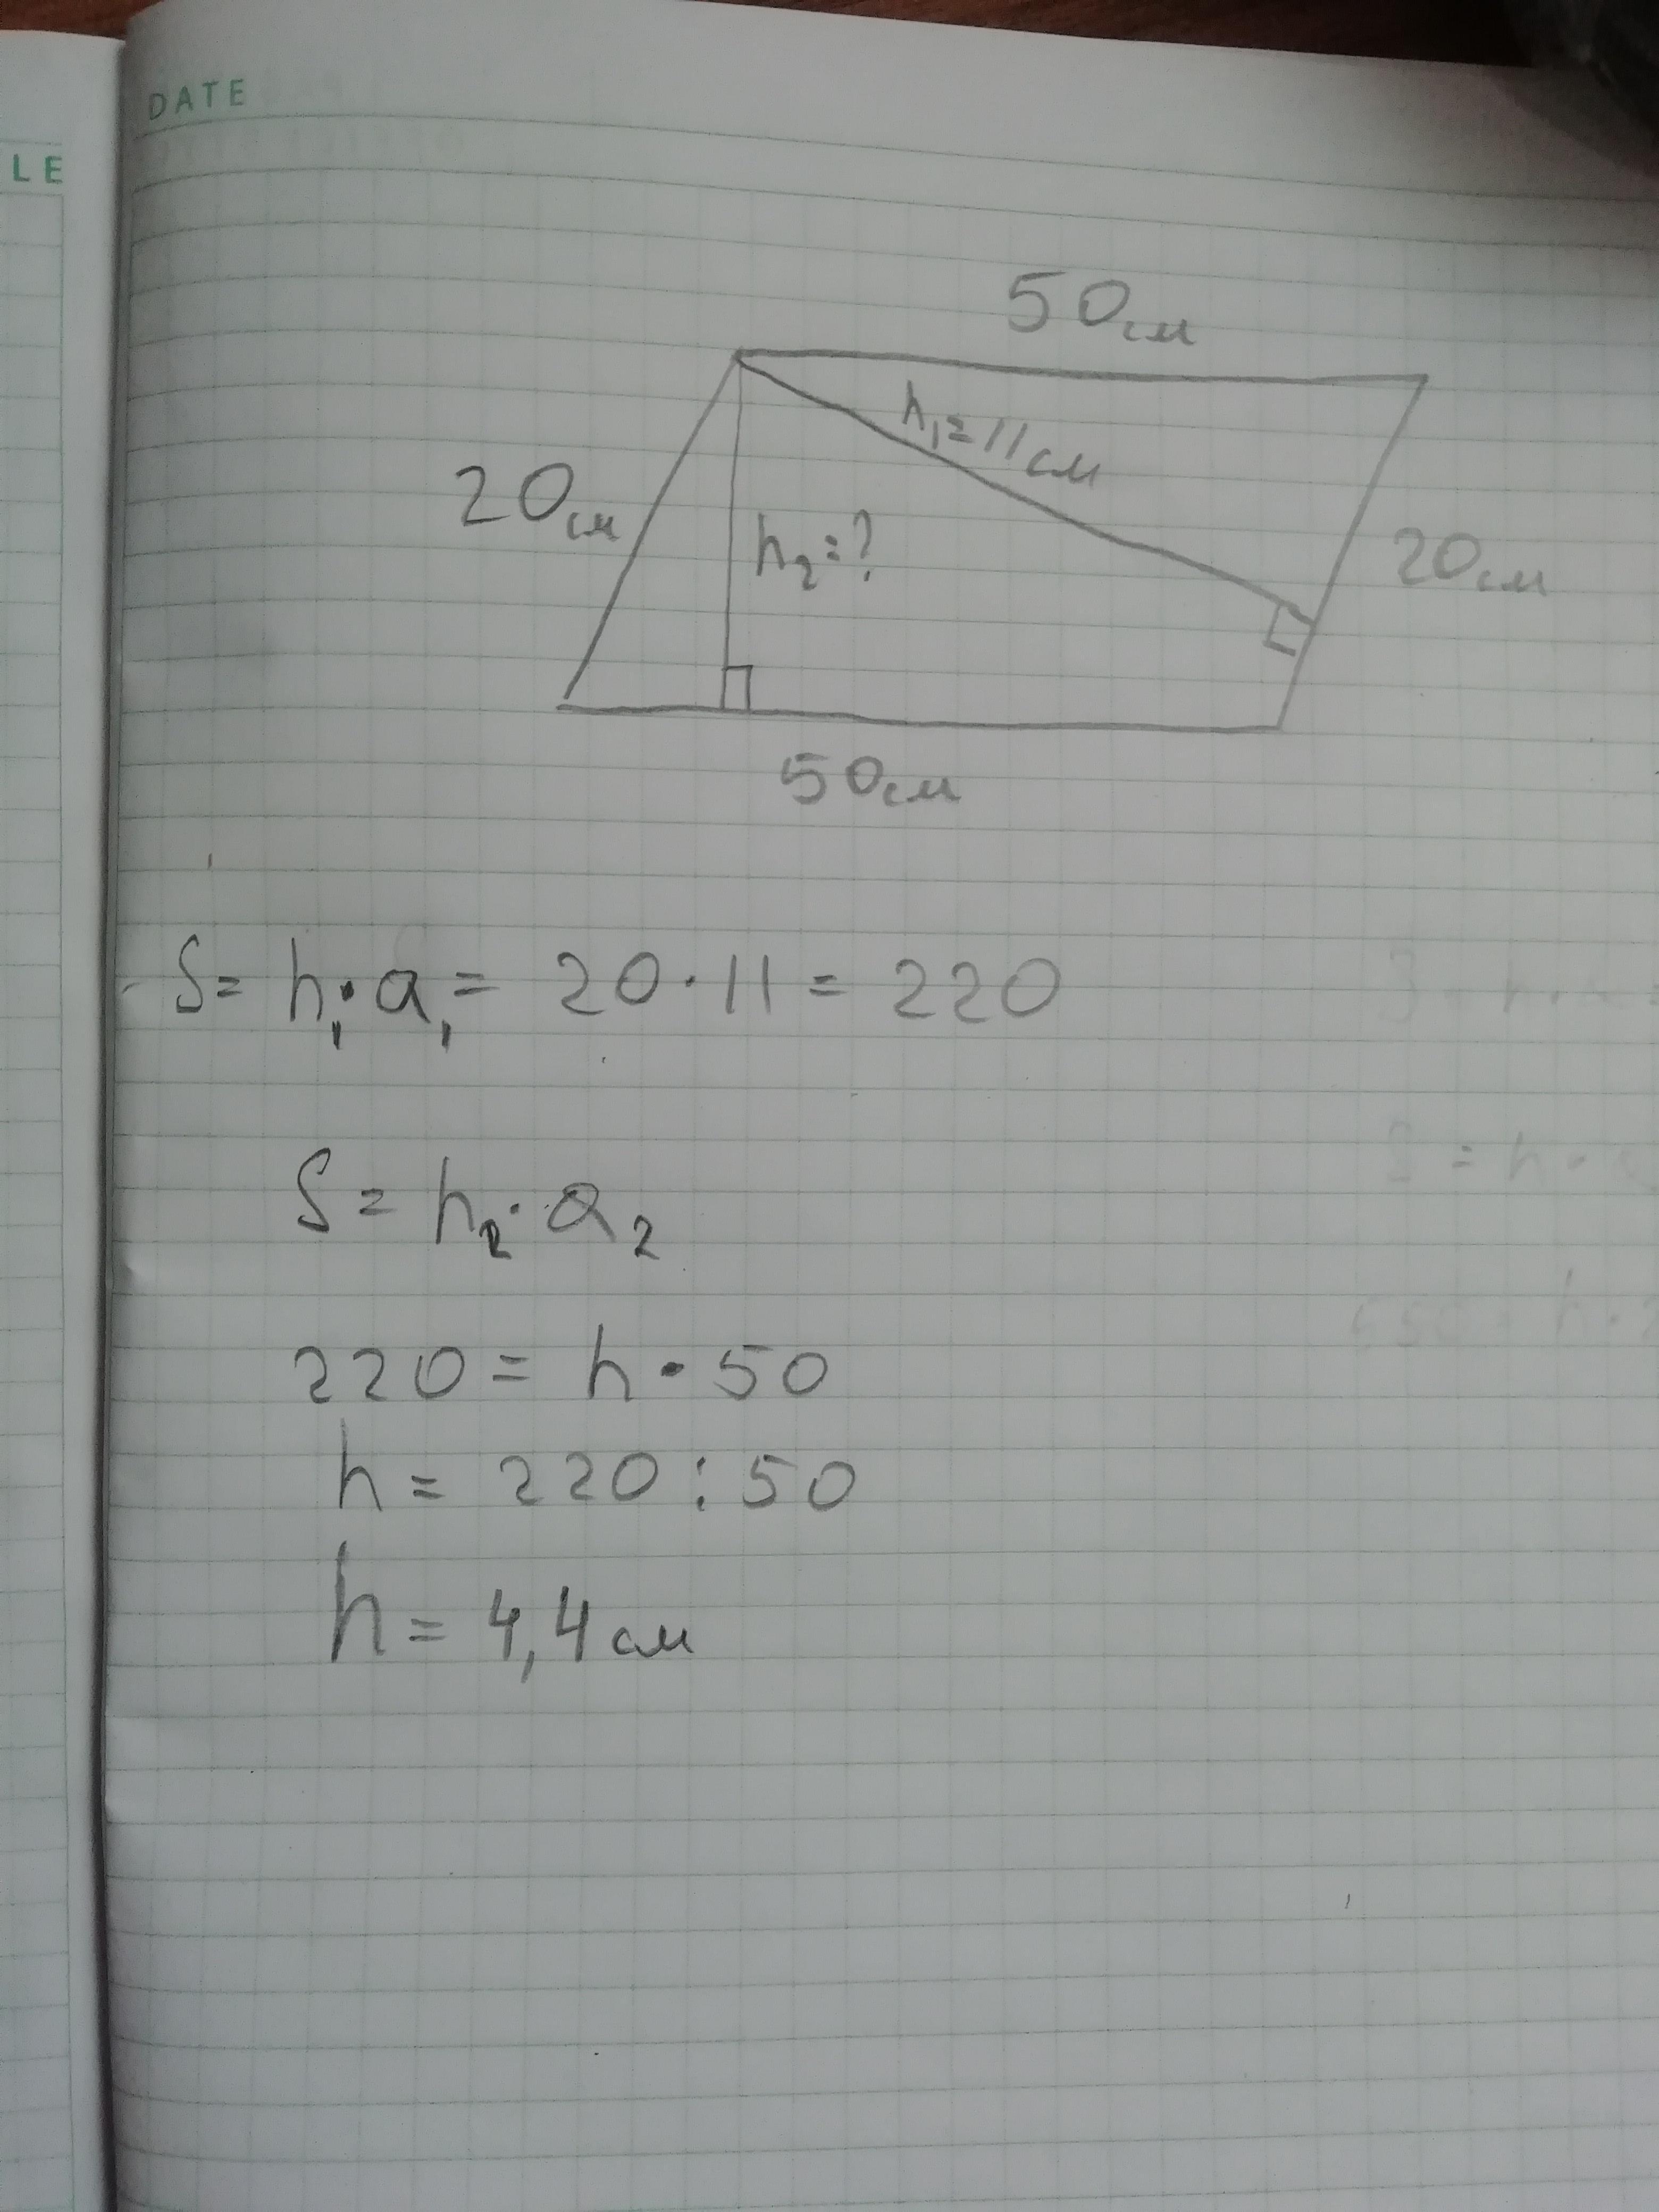 DATE
LE
50см
h₁=11см
20см
h₂=?
20см
50см
S= h₁·a₁= 20·11=220
S= h₂·a₂
220= h·50
h= 220:50
h= 4,4см